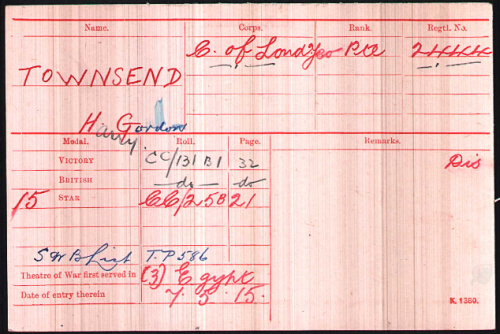 Name. Corps. Rank. Regtl. No.
C. of Lond Yeo Pte 2444
TOWNSEND
H Gordon
Harry
Medal. Roll. Page. Remarks.
VICTORY CC/131 B1 32 Dis
BRITISH do do
15 STAR CC/2 58 21
SWB List T.P 586
Theatre of War first served in (3) Egypt
Date of entry therein 7. 5. 15.
K. 1380.